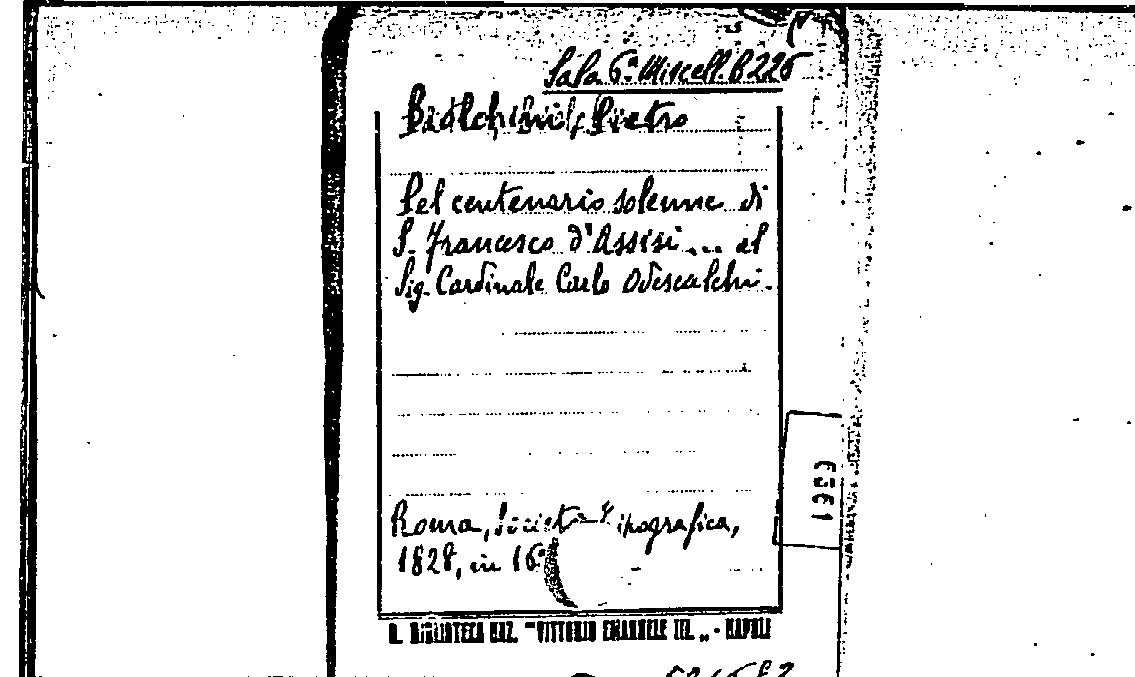 Sala 6ª Miscell. B 226
Pietro
Pel centenario solenne di
S. Francesco d'Assisi... al
Sig. Cardinale Carlo Odescalchi.
6361
Roma, Società Tipografica,
1828, in 16º
R. BIBLIOTECA NAZ. "VITTORIO EMANUELE III. „ - NAPOLI